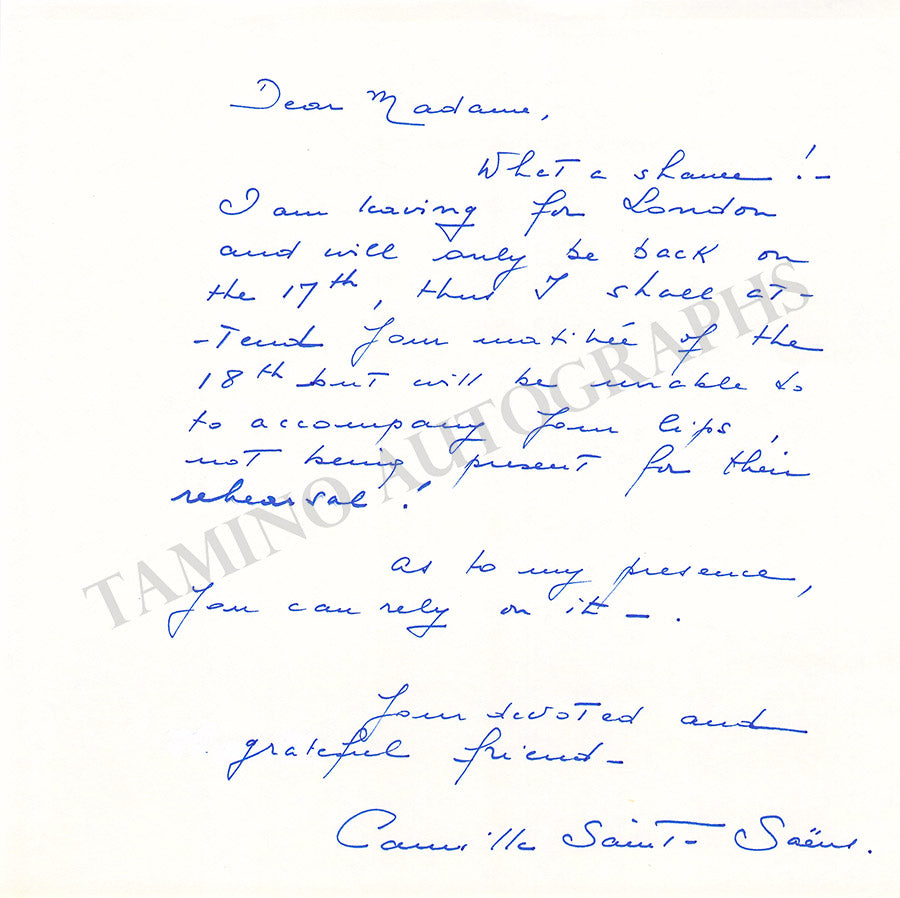 Dear Madame,
What a shame !-
I am leaving for London
and will only be back on
the 17th, thus I shall at-
-tend your matinée of the
18th but will be unable to
to accompany your lips,
not being present for their
rehearsal !
as to my presence,
you can rely on it - .
Your devoted and
grateful friend -
Camille Saint-Saëns.
TAMINO AUTOGRAPHS